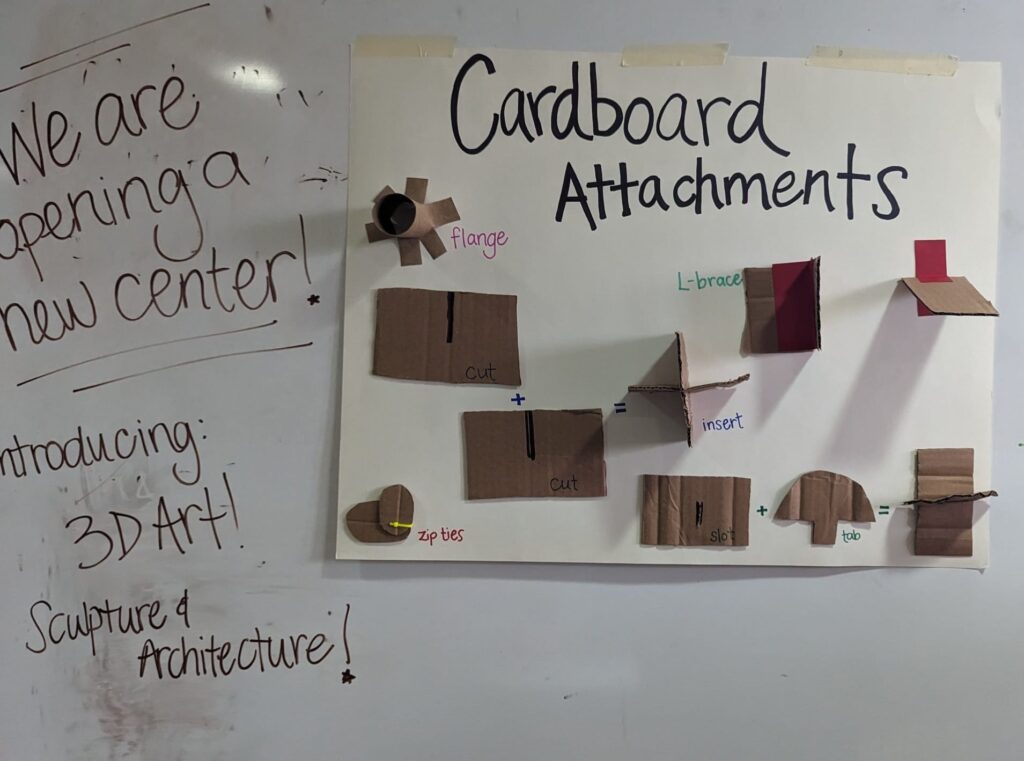 We are
opening a
new center!
Introducing:
3D Art!
Sculpture &
Architecture!
Cardboard
Attachments
flange
L-brace
cut
+
cut
=
insert
zip ties
slot
+
tab
=